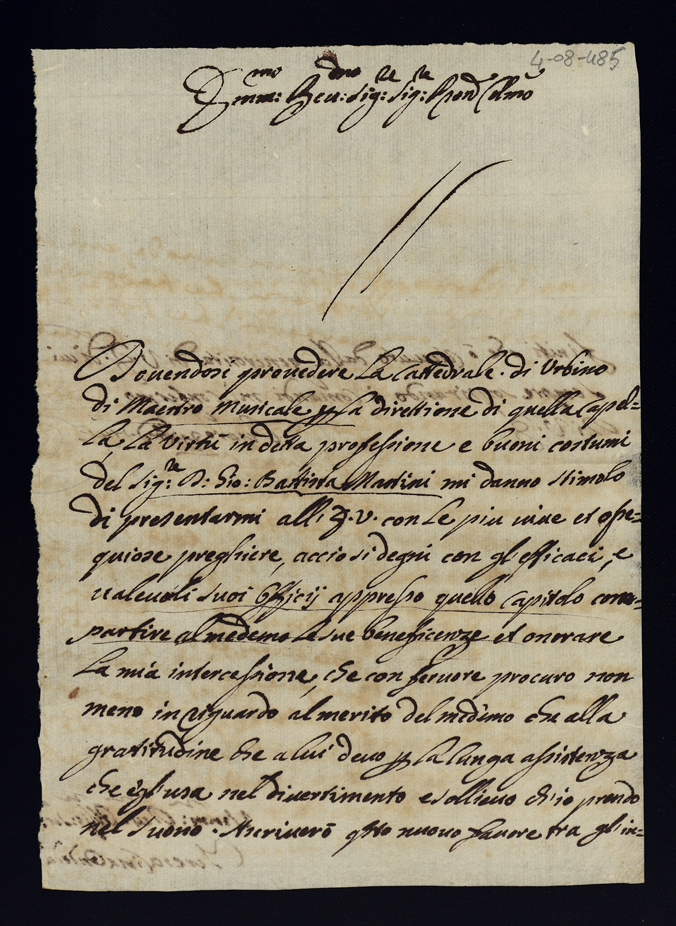 4-08-485
Emin:mo Rev:dmo Sig:re Sig:re Pron Colmo
Dovendosi provedere la Cattedrale di Urbino
di Maestro Musicale p la direttione di quella Capel=
la, La Virtù in detta professione e buoni costumi
del Sig:re D: Gio: Battista Martini mi danno stimolo
di presentarmi all' V. con le piu vive et osse=
quiose preghiere, acciò si degni con gl'efficaci, e
valevoli suoi Officij appresso quello Capitolo com=
partire al medemo le sue beneficenze et onorare
la mia intercessione, che con fervore procuro non
meno in riguardo al merito del medemo che alla
gratitudine che a lui devo p la lunga assistenza
che usa nel divertimento e sollievo ch'io prendo
nel suono. Ascriverò qsto nuovo favore tra gl'in=